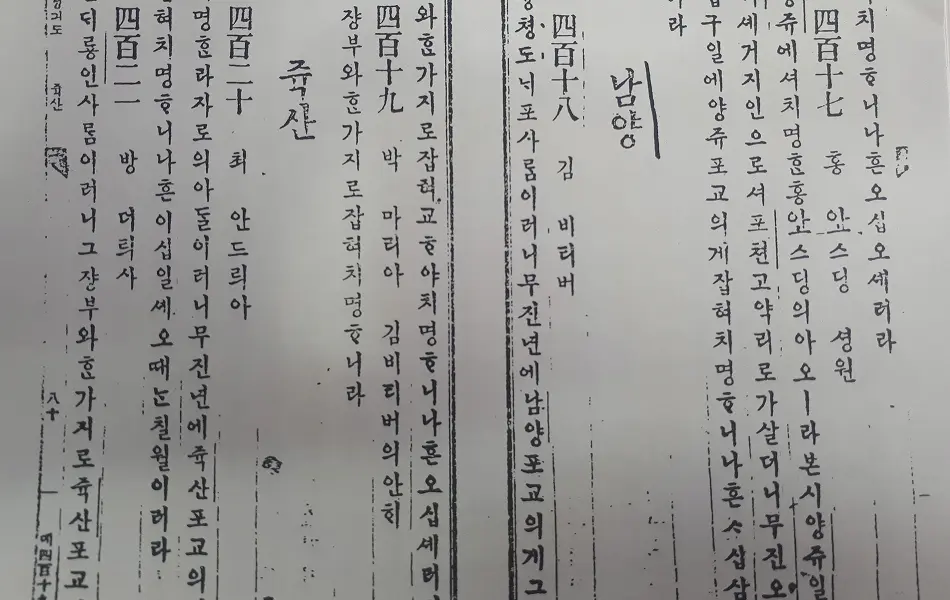 치명ᄒᆞ니나흔오십오셰러라
四百十七 홍 아오스딩 셩원
쥬에셔치명ᄒᆞᆫ홍아오스딩의아오ㅣ라본시양쥬일
셰거지인으로셔포쳔고약리로가살더니무진오
구일에양쥬포교의게잡혀치명ᄒᆞ니나흔ᄉᆞ십삼
라
남양
四百十八 김 비리버
쳥도닉포사ᄅᆞᆷ이러니무진년에남양포교의게그
와ᄒᆞᆫ가지로잡혀교ᄒᆞ야치명ᄒᆞ니나흔오십셰러
四百十九 박 마리아 김비리버의안ᄒᆡ
쟝부와ᄒᆞᆫ가지로잡혀치명ᄒᆞ니라
쥭산
四百二十 최 안드릐아
명ᄒᆞᆫ라자로의아ᄃᆞᆯ이러니무진년에쥭산포교의
혀치명ᄒᆞ니나흔이십일셰오때ᄂᆞᆫ칠월이러라
四百二一 방 더릐사
디룡인사ᄅᆞᆷ이러니그쟝부와ᄒᆞᆫ가지로쥭산포교
쥭산 八十